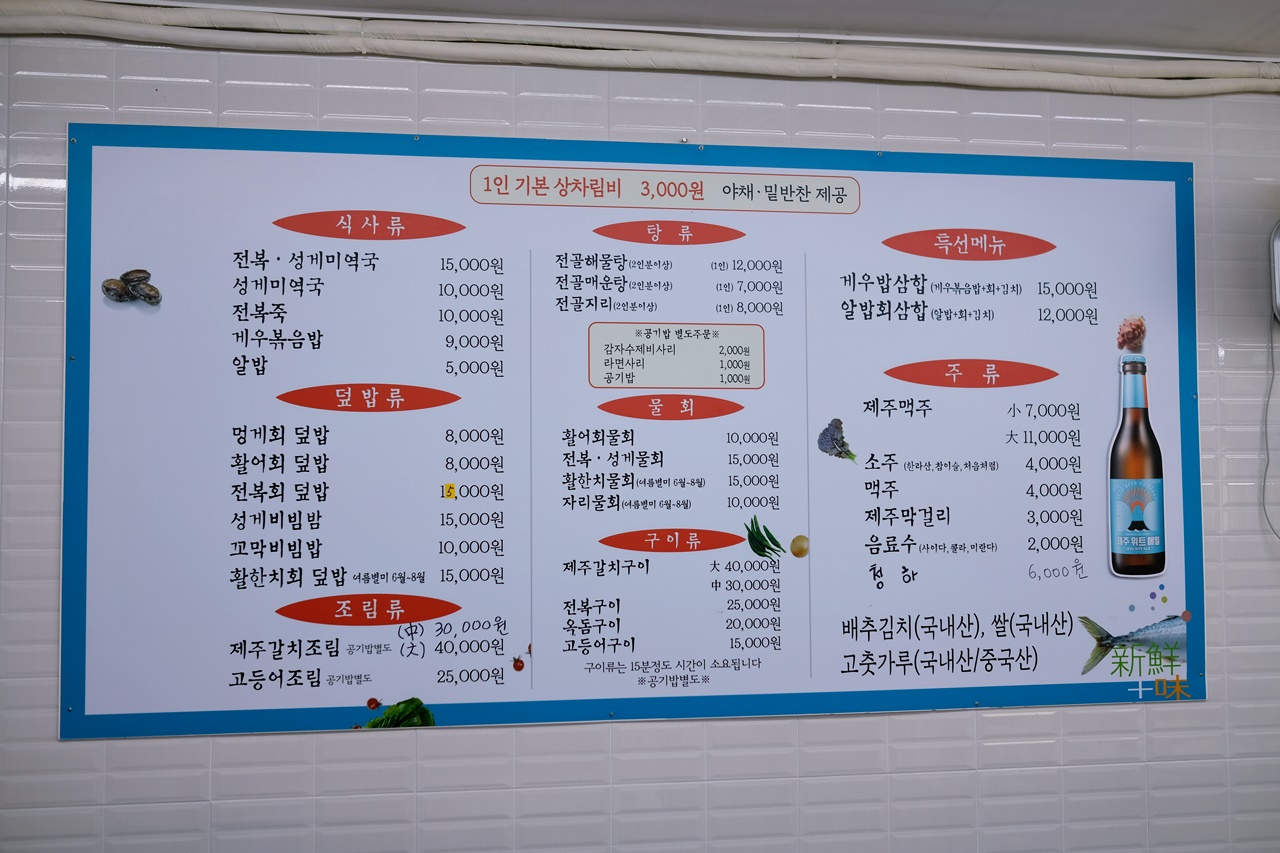 1인 기본 상차림비 3,000원 야채·밑반찬 제공
식사류
전복·성게미역국 15,000원
성게미역국 10,000원
전복죽 10,000원
게우볶음밥 9,000원
알밥 5,000원
덮밥류
멍게회 덮밥 8,000원
활어회 덮밥 8,000원
전복회 덮밥 15,000원
성게비빔밤 15,000원
꼬막비빔밥 10,000원
활한치회 덮밥 여름별미 6월~8월 15,000원
조림류
(中) 30,000원
제주갈치조림 공기밥별도 (大) 40,000원
고등어조림 공기밥별도 25,000원
탕류
전골해물탕(2인분이상) (1인) 12,000원
전골매운탕(2인분이상) (1인) 7,000원
전골지리(2인분이상) (1인) 8,000원
※공기밥 별도주문※
감자수제비사리 2,000원
라면사리 1,000원
공기밥 1,000원
물회
활어회물회 10,000원
전복·성게물회 15,000원
활한치물회(여름별미 6월~8월) 15,000원
자리물회(여름별미 6월~8월) 10,000원
구이류
제주갈치구이 大 40,000원
中 30,000원
전복구이 25,000원
옥돔구이 20,000원
고등어구이 15,000원
구이류는 15분정도 시간이 소요됩니다
※공기밥별도※
특선메뉴
게우밥삼합(게우볶음밥+회+김치) 15,000원
알밥회삼합(알밥+회+김치) 12,000원
주류
제주맥주 小 7,000원
大 11,000원
소주 (한라산,참이슬,처음처럼) 4,000원
맥주 4,000원
제주막걸리 3,000원
음료수(사이다, 콜라, 미란다) 2,000원
청하 6,000원
제주 위트 에일
배추김치(국내산), 쌀(국내산)
고춧가루(국내산/중국산)
新鮮
+味